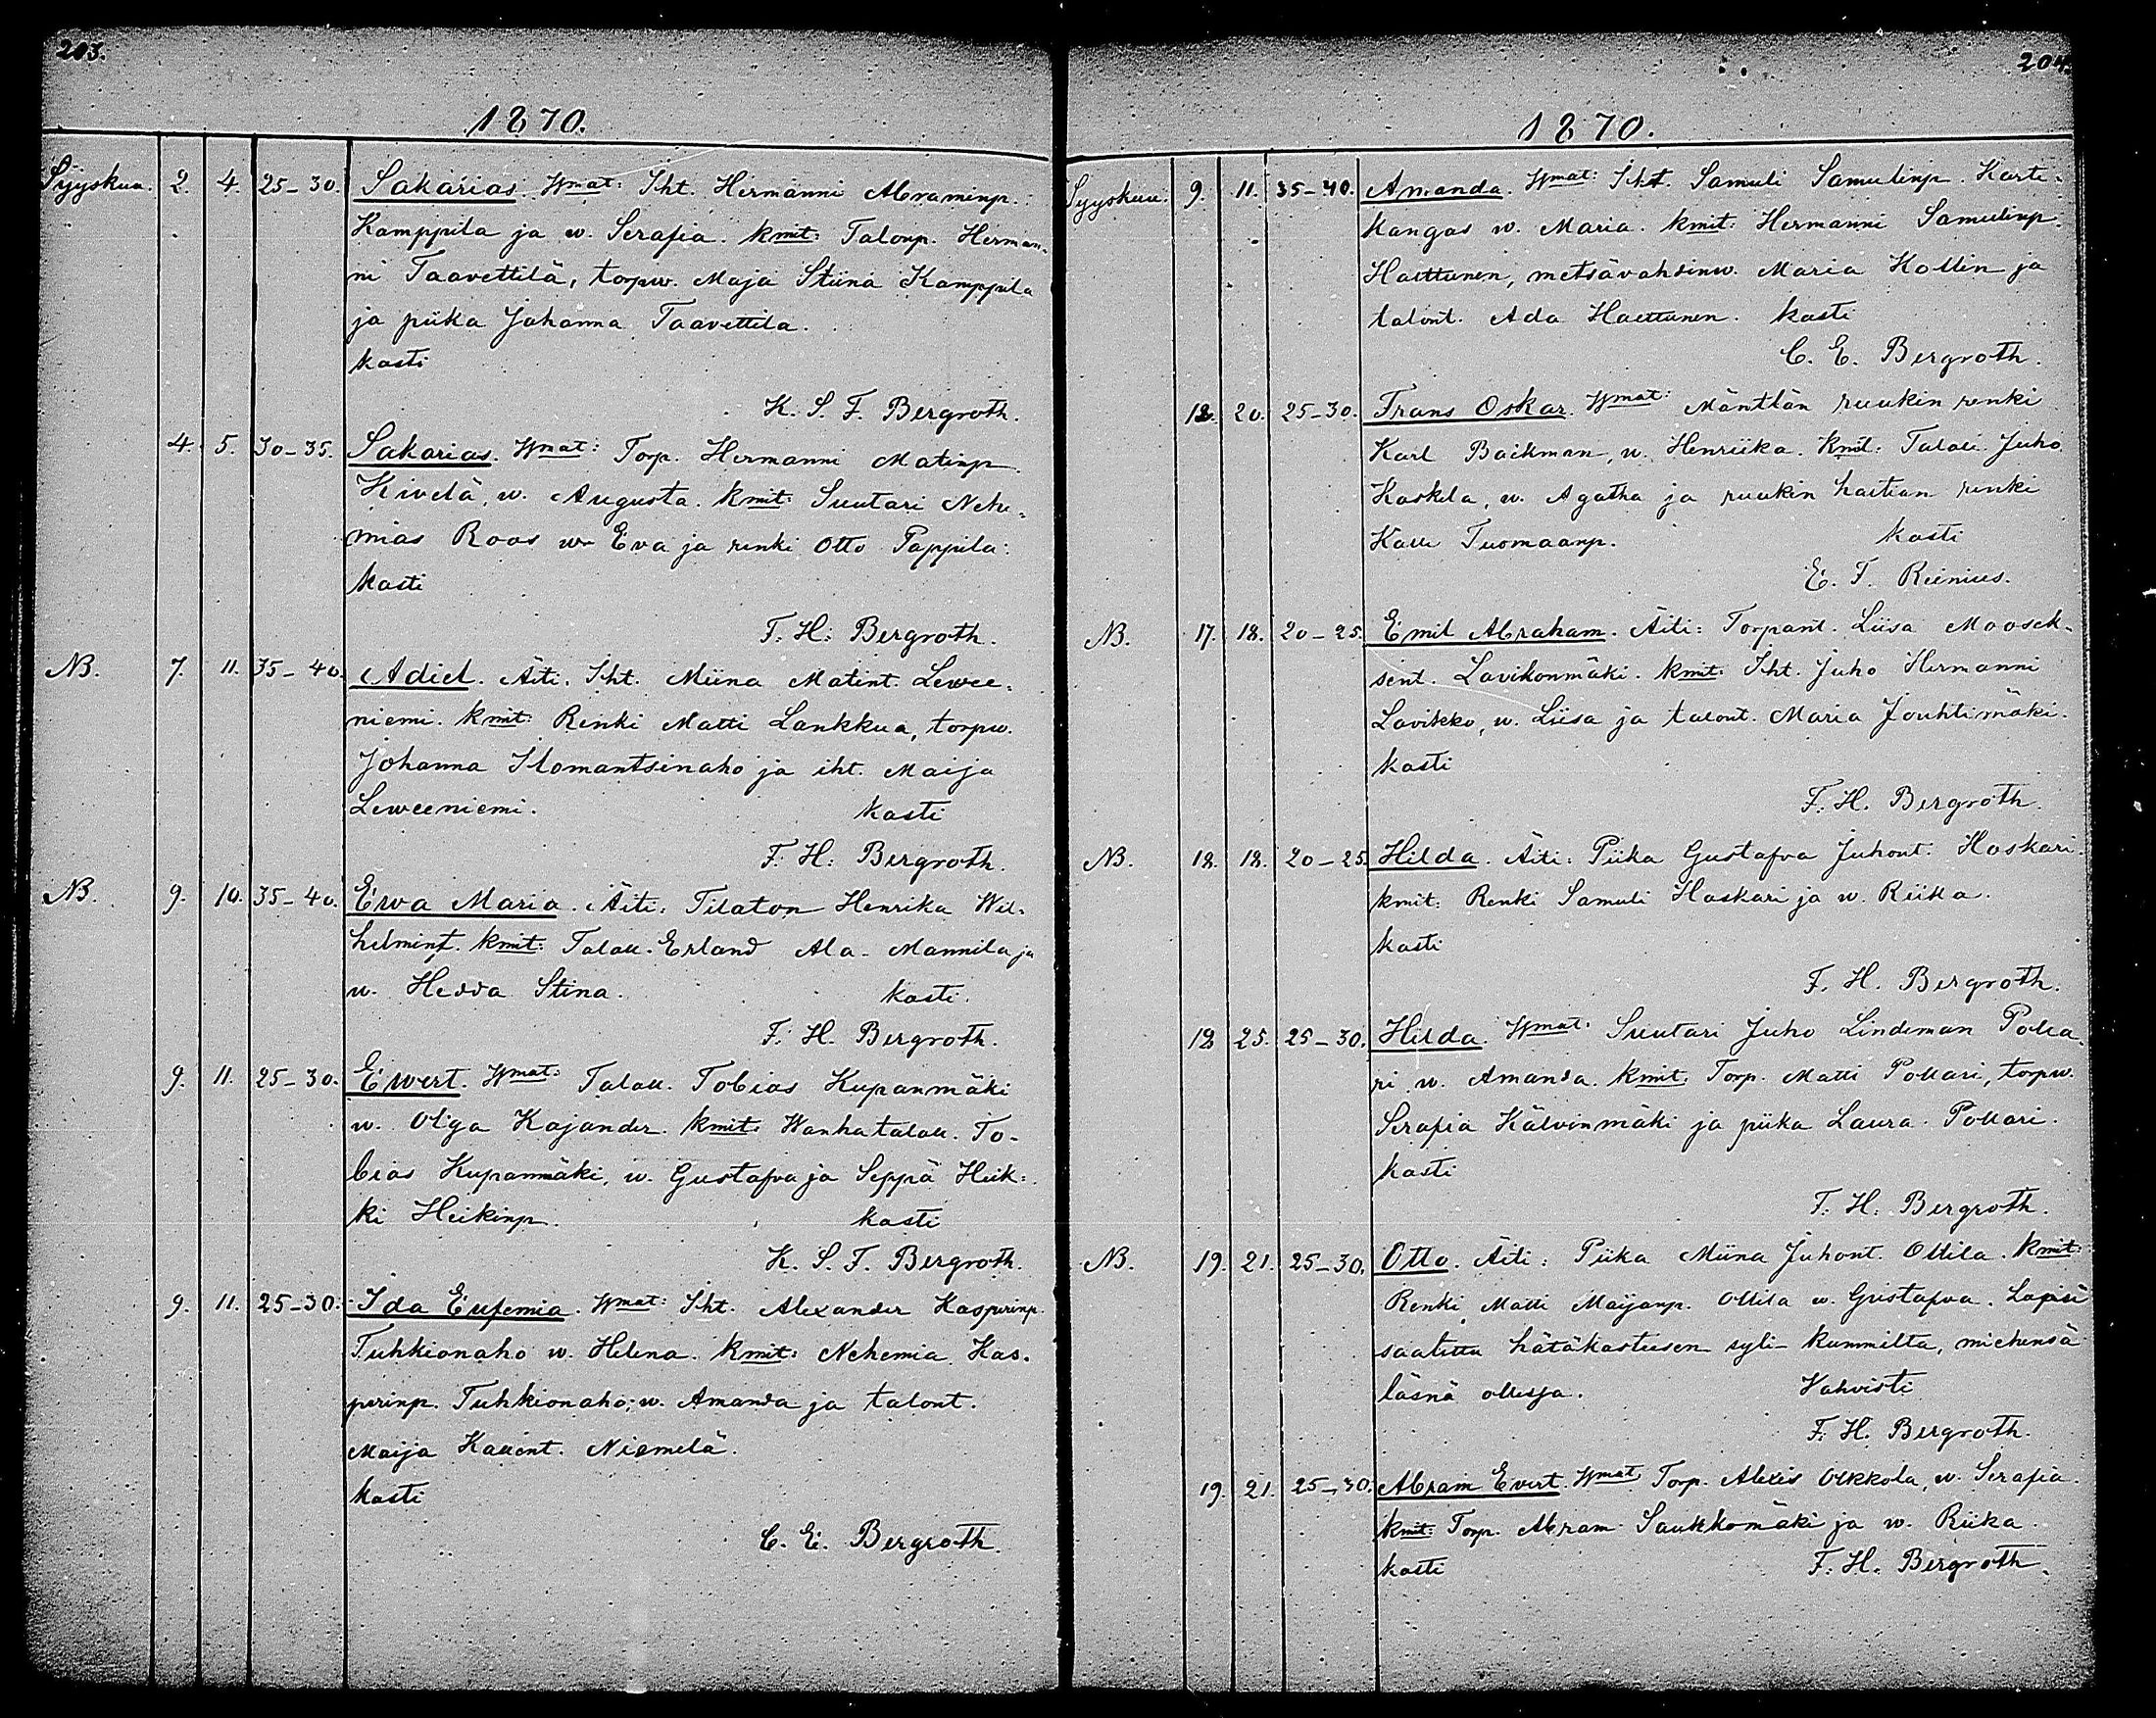 203.
1870.
Syyskuu. 2. 4. 25-30. Sakarias. Wmat: Iht. Hermanni Abraminp.
Kamppila ja w. Serafia. kmit: Talonp. Herman-
ni Taavettilä, torpw. Maja Stiina Kamppila
ja piika Johanna Taavettila.
kasti
K. S. F. Bergroth.
4. 5. 30-35. Sakarias. Wmat: Torp. Hermanni Matinp.
Kivelä, w. Augusta. kmit: Suutari Nehe-
mias Roos w Eva ja renki Otto Pappila.
kasti
F. H. Bergroth.
NB. 7. 11. 35-40. Adiel. Äiti. Iht. Miina Matint. Lewee-
niemi. kmit: Renki Matti Lankkua, torpw.
Johanna Ilomantsinaho ja iht. Maija
Leweeniemi. kasti
F. H. Bergroth.
NB. 9. 10. 35-40. Ewa Maria. Äiti: Tilaton Henrika Wil-
helmint. kmit: Talall. Erland Ala-Mannila ja
w. Hedda Stina. kasti.
F. H. Bergroth.
9. 11. 25-30. Ewert. Wmat: Talall. Tobias Kupanmäki
w. Olga Kajander. kmit: Wanha talall. To-
bias Kupanmäki, w. Gustafva ja Seppä Heik-
ki Heikinp. kasti
K. S. F. Bergroth.
9. 11. 25-30. Ida Eufemia. Wmat: Iht. Alexander Kasperinp.
Tuhkionaho w. Helena. kmit: Nehemia Kas-
perinp. Tuhkionaho, w. Amanda ja talont.
Maija Kallent. Niemelä.
kasti
C. E. Bergroth.
204.
1870.
Syyskuu. 9. 11. 35-40. Amanda. Wmat: Iht. Samuli Samulinp. Karti-
kangas w. Maria. kmit: Hermanni Samulinp.
Haettunen, metsävahdinw. Maria Hollin ja
talont. Ada Haettunen. kasti
C. E. Bergroth.
12. 20. 25-30. Frans Oskar. Wmat: Mänttän ruukin renki
Karl Backman, w. Henriika. kmit: Talall. Juho
Koskela, w. Agatha ja ruukin haltian renki
Kalle Tuomaanp. kasti
E. F. Reinius.
NB. 17. 18. 20-25. Emil Abraham. Äiti: Torpant. Liisa Moosek-
sent. Lavikonmäki. kmit: Iht. Juho Hermanni
Lavikko, w. Liisa ja talont. Maria Jouhtimäki.
kasti
F. H. Bergroth.
NB. 18. 18. 20-25. Hilda. Äiti: Piika Gustafva Juhont. Haskari.
kmit: Renki Samuli Haskari ja w. Riika.
kasti
F. H. Bergroth.
18 25. 25-30. Hilda. Wmat: Suutari Juho Lindeman Polla-
ri w. Amanda. kmit: Torp. Matti Pollari, torpw.
Serafia Kälvinmäki ja piika Laura Pollari.
kasti
F. H. Bergroth.
NB. 19. 21. 25-30. Otto. Äiti: Piika Miina Juhont. Ollila. kmit:
Renki Matti Maijanp. Ollila w. Gustafva. Lapsi
saatettu hätäkasteesen syli-kummilta, miehensä
läsnä ollesja. Vahvisti
F. H. Bergroth.
19. 21. 25-30. Abram Evert. Wmat: Torp. Alexis Olkkola, w. Serafia.
kmit: Torp. Abram Saukkomäki ja w. Riika.
kasti F. H. Bergroth.